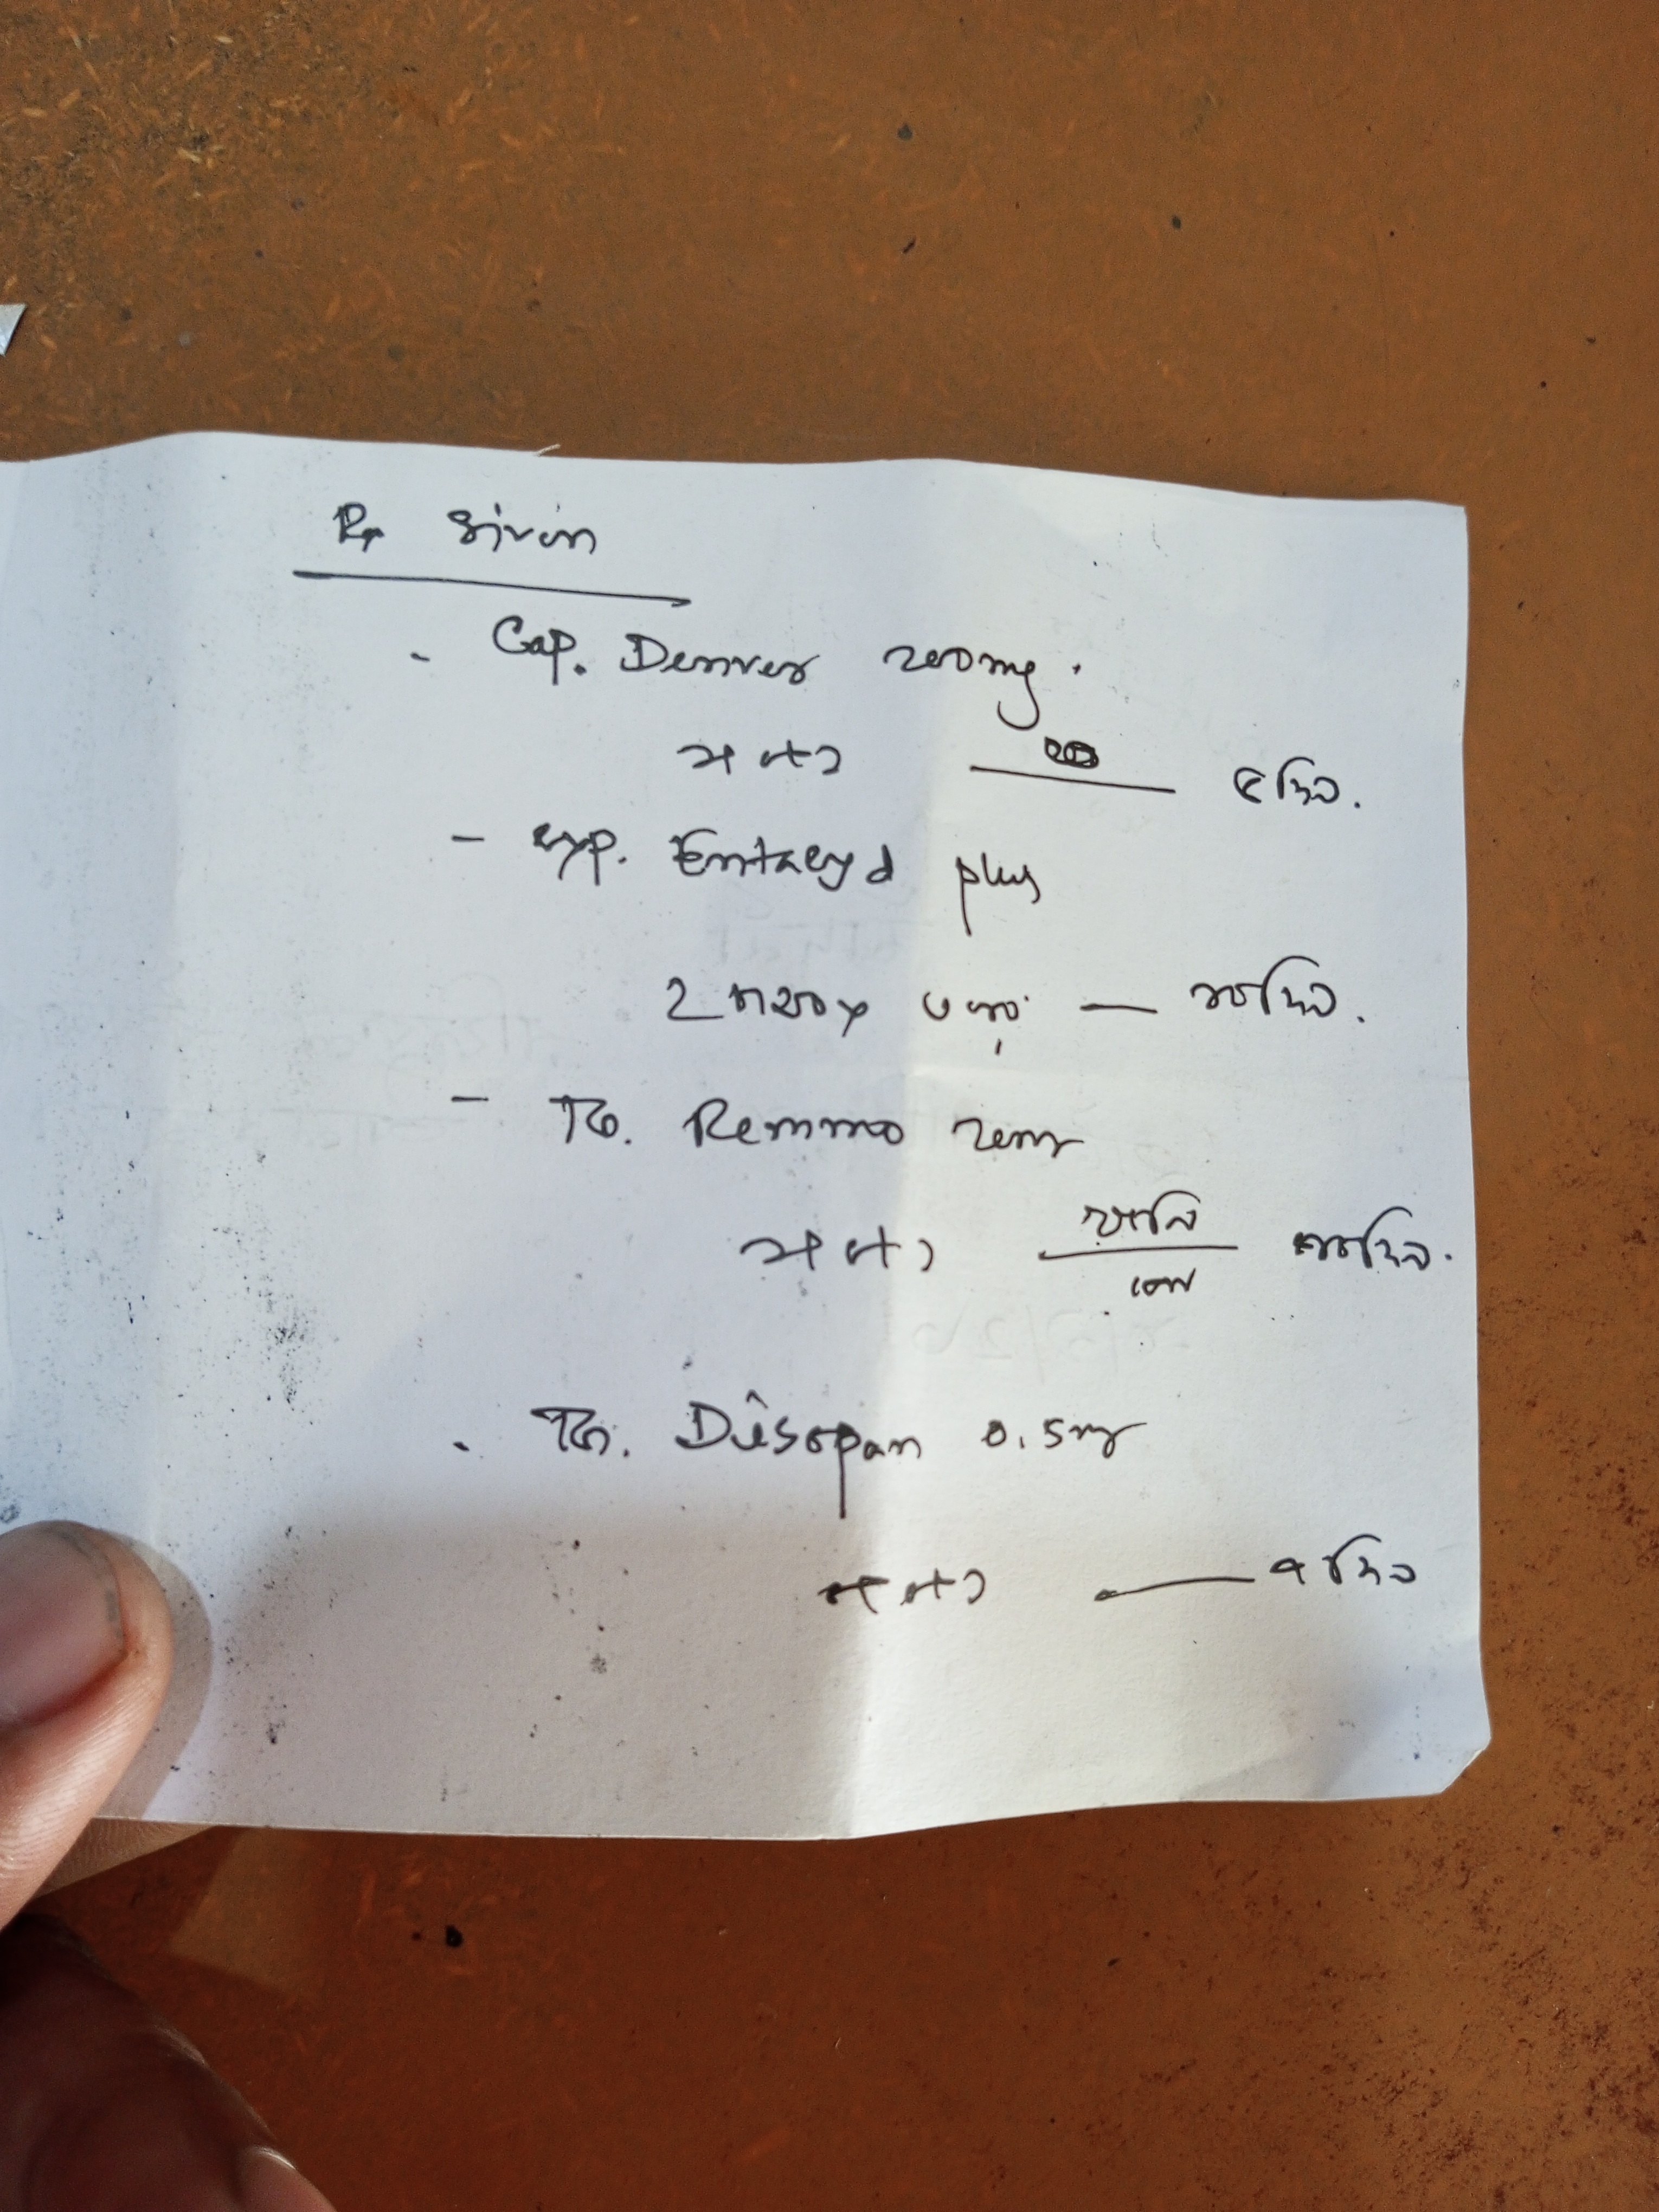 Rx given
- Cap. Denver 200mg.
১+০+১ ৫ দিন.
- syp. Entacyd plus
2 চামচ x ৩ বার — ১০ দিন.
- Tb. Remmo 20mg
১+০+১ খালি পেটে দিন.
- Tb. Disopan 0.5mg
০+০+১ — ৭ দিন